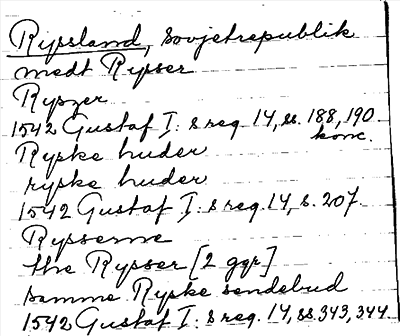 Rysland, Sovjetrepublik
medt Rysser
Ryszer
1542 Gustaf I:s reg. 14, ss. 188, 190
konc.
Ryske huder
ryske huder
1542 Gustaf I:s reg. 14, s. 207.
Rysserne
the Rysser [2 ggr]
samme Ryske sendebud
1542 Gustaf I:s reg. 14, ss. 343, 344